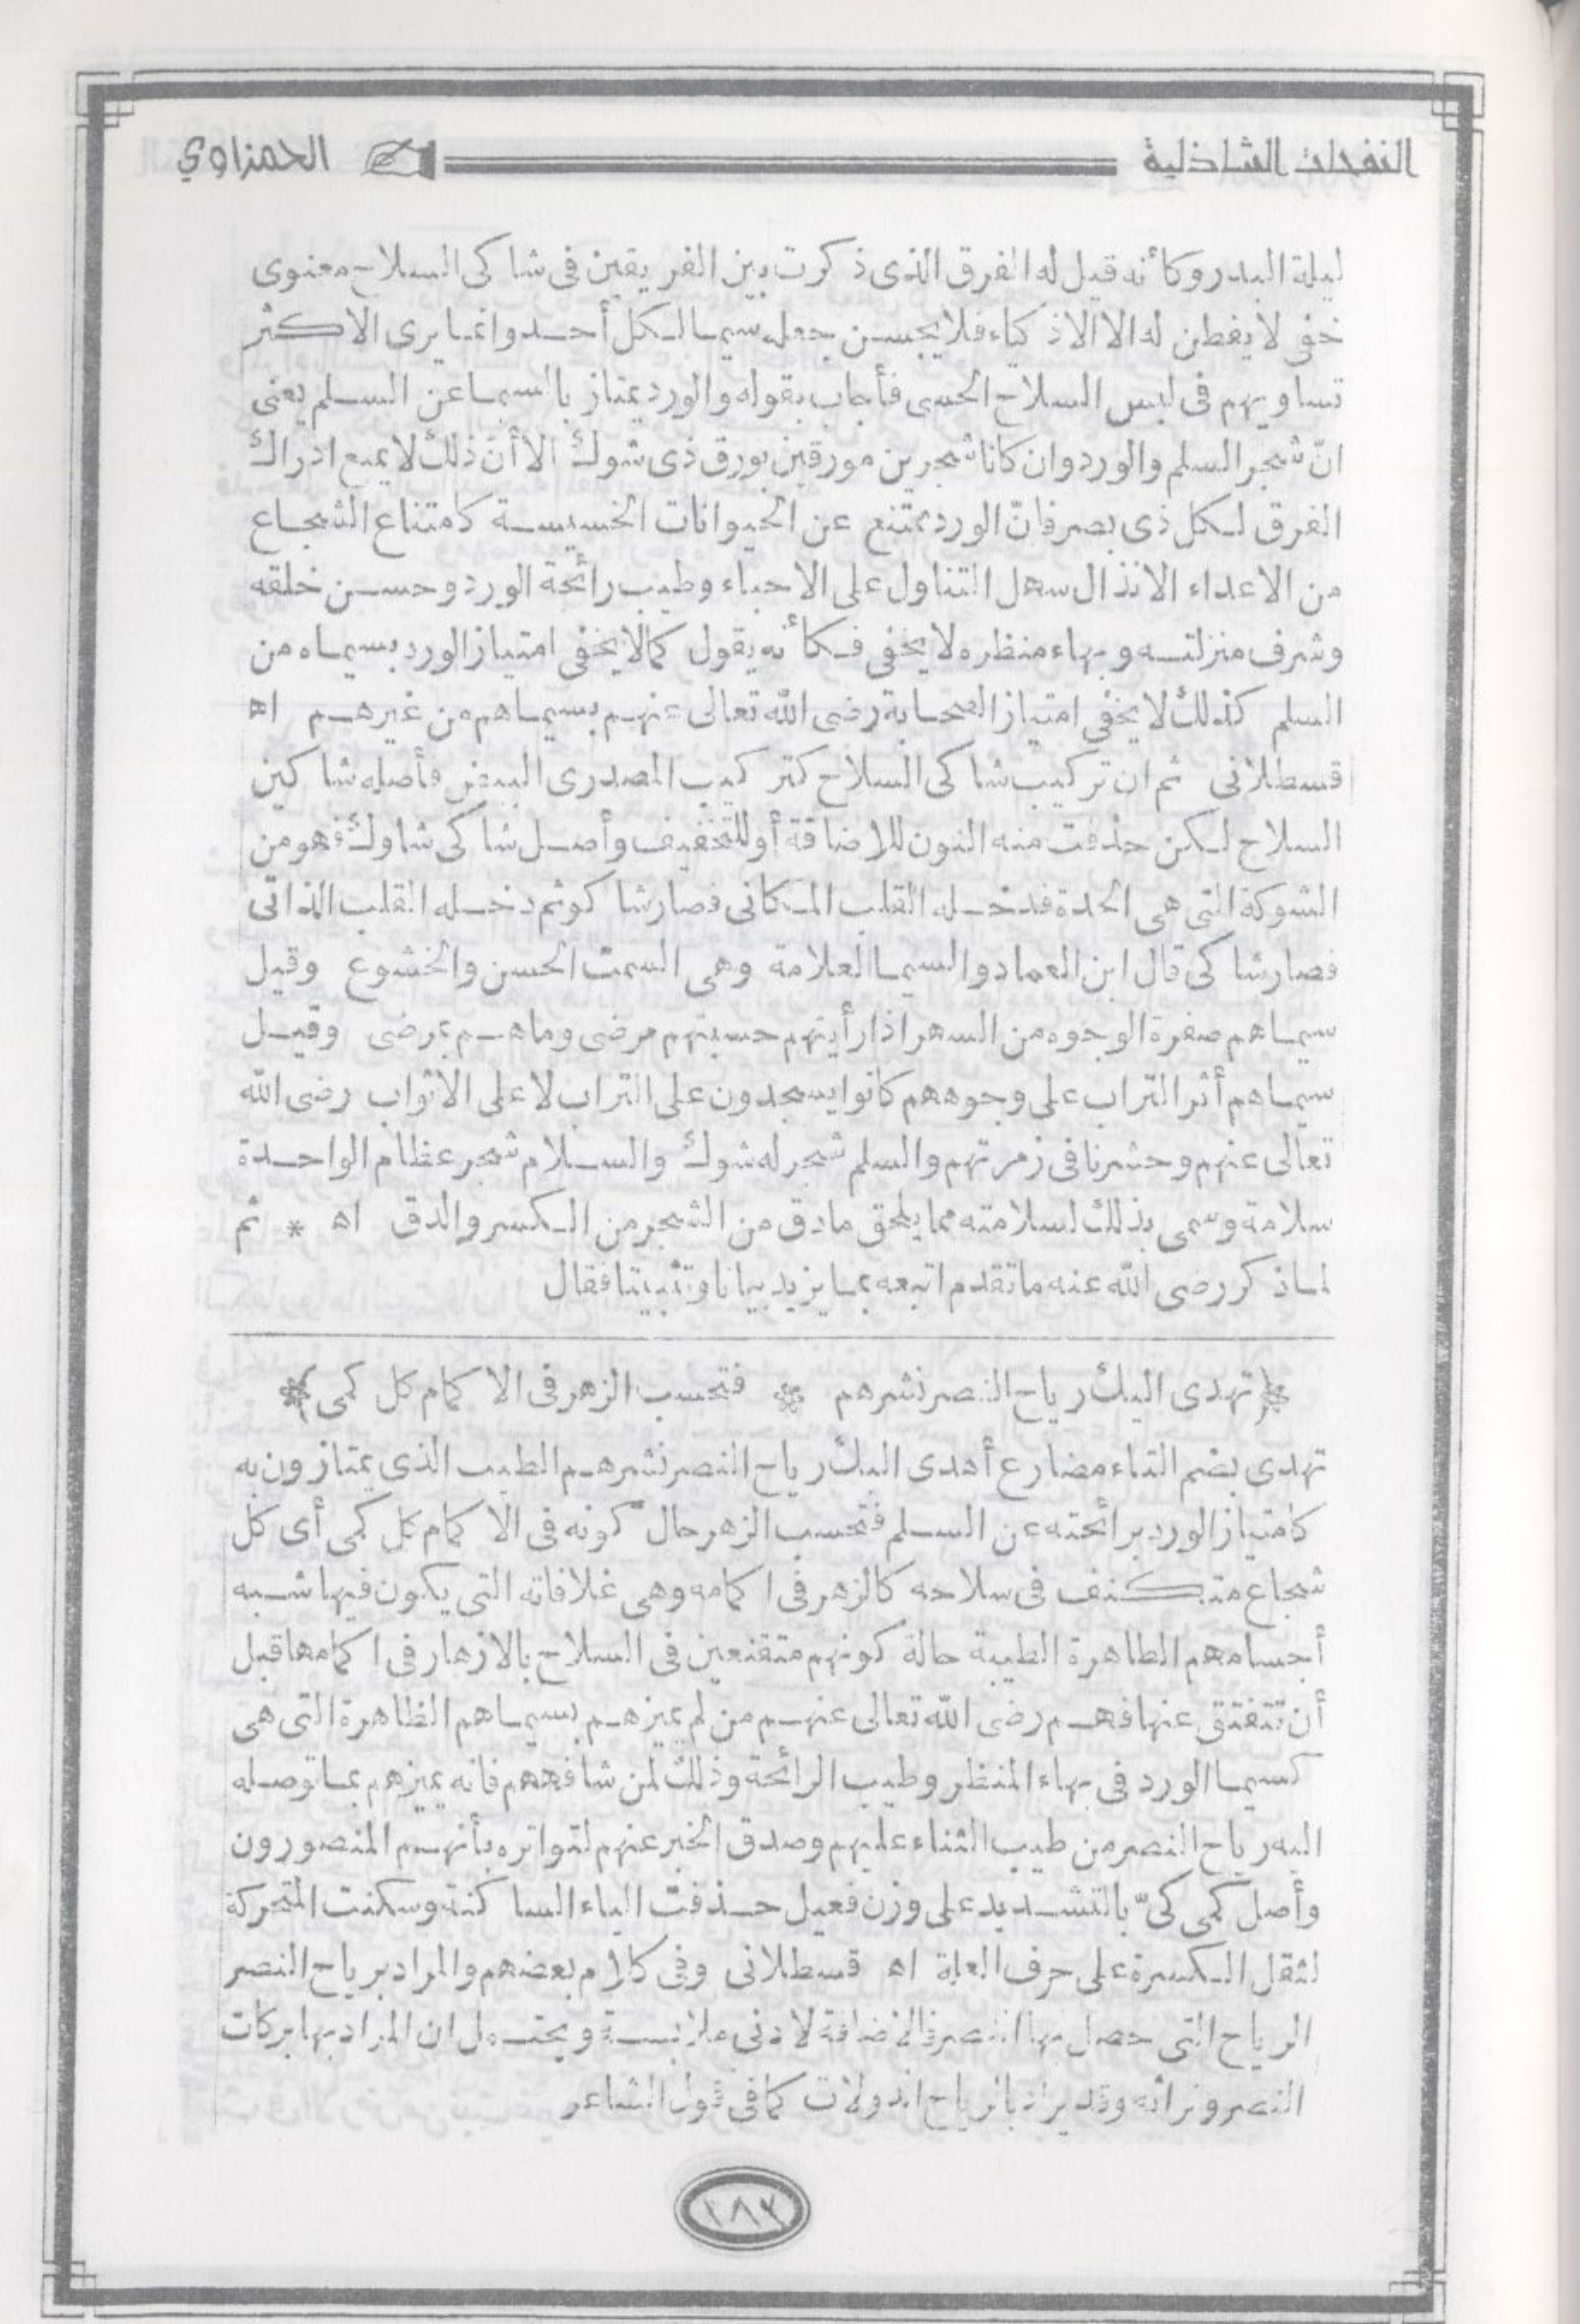 النفحات الشاذلية
الحمزاوي
ليلة البدر وكأنه قيل له الفرق الذى ذكرت بين الفريقين فى شاكى السلاح معنوى
خفى لا يفطن له الا الاذكياء فلا يحسن جعله سيما لكل أحد وانما يرى الاكثر
تساويهم فى لبس السلاح الحسى فأجاب بقوله والورد يمتاز بالسيما عن السلم يعنى
انّ شجر السلم والورد وان كانا شجرين مورقين بورق ذى شوك الا أن ذلك لا يمنع ادراك
الفرق لكل ذى بصر فانّ الورد يمتنع عن الحيوانات الخسيسة كامتناع الشجاع
من الاعداء الانذال سهل التناول على الاحباء وطيب رائحة الورد وحسن خلقه
وشرف منزلته وبهاء منظره لا يخفى فكأنه يقول كما لا يخفى امتياز الورد بسيماه من
السلم كذلك لا يخفى امتياز الصحابة رضى الله تعالى عنهم بسيماهم من غيرهم اه
قسطلانى ثم ان تركيب شاكى السلاح كتركيب المصدرى البيض فأصله شاكين
السلاح لكن حذفت منه النون للاضافة أو للتخفيف وأصل شاكى شاوك فهو من
الشوكة التى هى الحدة فدخله القلب المكانى فصار شاكو ثم دخله القلب الذاتى
فصار شاكى قال ابن العماد والسيما العلامة وهى السمت الحسن والخشوع وقيل
سيماهم صفرة الوجوه من السهر اذا رأيتهم حسبتهم مرضى وما هم بمرضى وقيل
سيماهم أثر التراب على وجوههم كانوا يسجدون على التراب لا على الاثواب رضى الله
تعالى عنهم وحشرنا فى زمرتهم والسلم شجر له شوك والسلام شجر عظام الواحدة
سلامة وسمى بذلك لسلامته مما يلحق مادق من الشجر من الكسر والدق اه * ثم
لما ذكر رضى الله عنه ما تقدم اتبعه بما يزيد بيانا وتثبيتا فقال
﴿تهدى اليك رياح النصر نشرهم * فتحسب الزهر فى الاكمام كل كمى﴾
تهدى بضم التاء مضارع أهدى اليك رياح النصر نشرهم الطيب الذى يمتازون به
كامتياز الورد برائحته عن السلم فتحسب الزهر حال كونه فى الاكمام كل كمى أى كل
شجاع متكنف فى سلاحه كالزهر فى اكمامه وهى غلافاته التى يكون فيها شبه
أجسامهم الطاهرة الطيبة حالة كونهم متقنعين فى السلاح بالازهار فى اكمامها قبل
أن تتفتق عنها فهم رضى الله تعالى عنهم من لم يميزهم بسيماهم الظاهرة التى هى
كسيما الورد فى بهاء المنظر وطيب الرائحة وذلك لمن شافههم فانه يميزهم بما توصله
اليه رياح النصر من طيب الثناء عليهم وصدق الخبر عنهم لتواتره بأنهم المنصورون
وأصل كمى كمىّ بالتشديد على وزن فعيل حذفت الياء الساكنة وسكنت المتحركة
لثقل الكسرة على حرف العلة اه قسطلانى وفى كلام بعضهم والمراد برياح النصر
الرياح التى حصل بها النصر فالاضافة لادنى ملابسة ويحتمل ان المراد بها بركات
النصر وثمراته وقد يراد بالرياح الدولات كما فى قول الشاعر
١٨٣